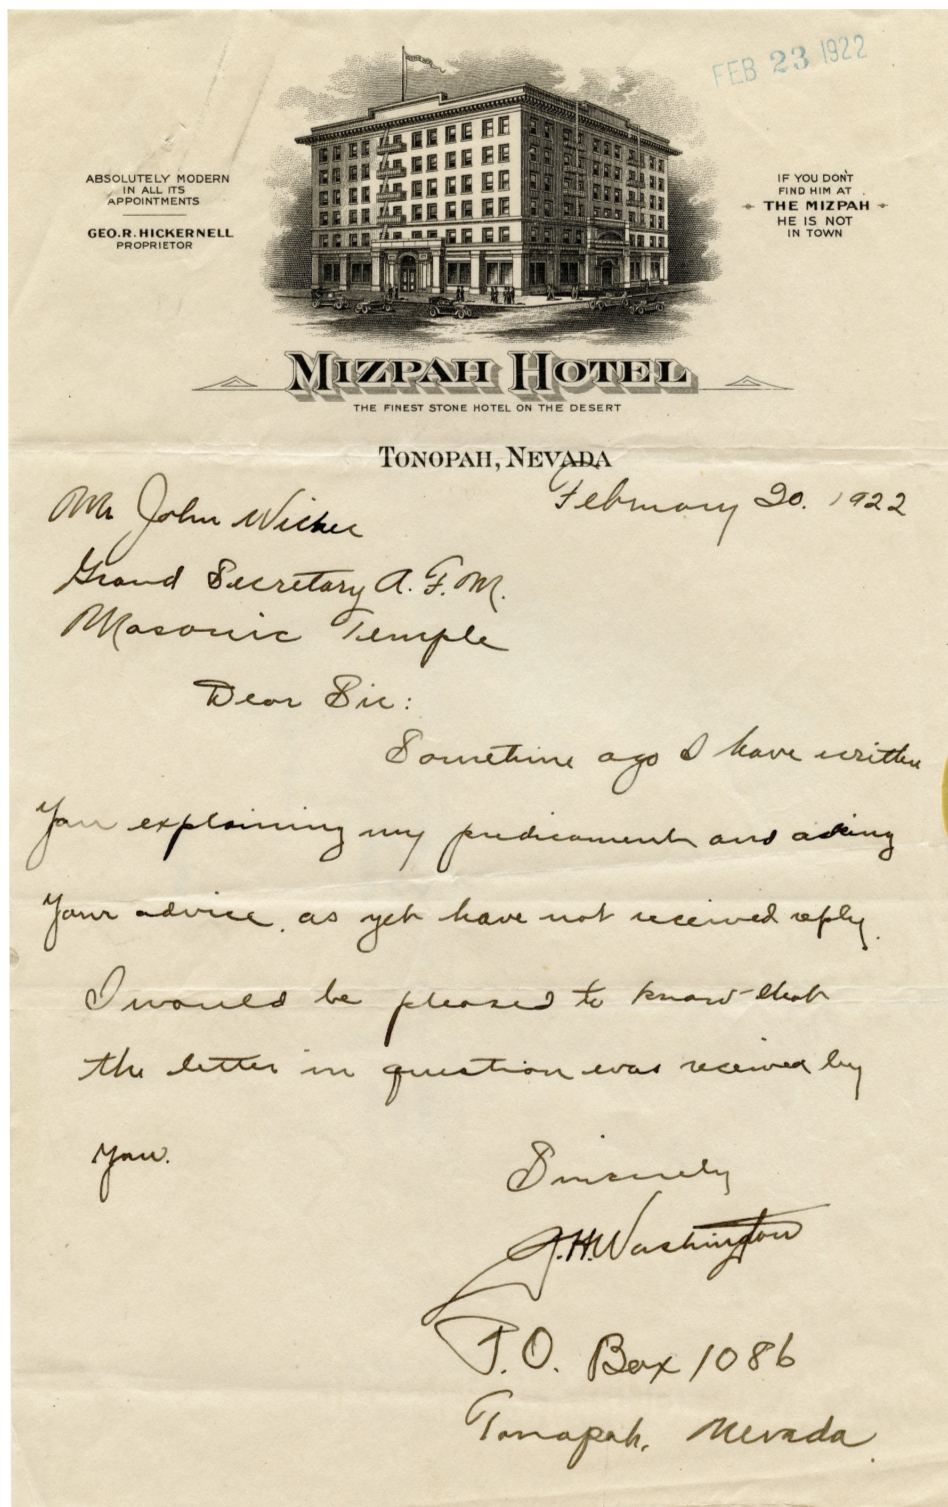 FEB 23 1922
ABSOLUTELY MODERN
IN ALL ITS
APPOINTMENTS
GEO. R. HICKERNELL
PROPRIETOR
IF YOU DON'T
FIND HIM AT
THE MIZPAH
HE IS NOT
IN TOWN
MIZPAH HOTEL
THE FINEST STONE HOTEL ON THE DESERT
TONOPAH, NEVADA
February 20. 1922
Mr John Wicker
Grand Secretary A. F. M.
Masonic Temple
Dear Sir:
Sometime ago I have written
you explaining my predicament and asking
your advice. as yet have not received reply.
I would be pleased to know that
the letter in question was received by
you.
Sincerely
J. H. Washington
P. O. Box 1086
Tonopah, Nevada.